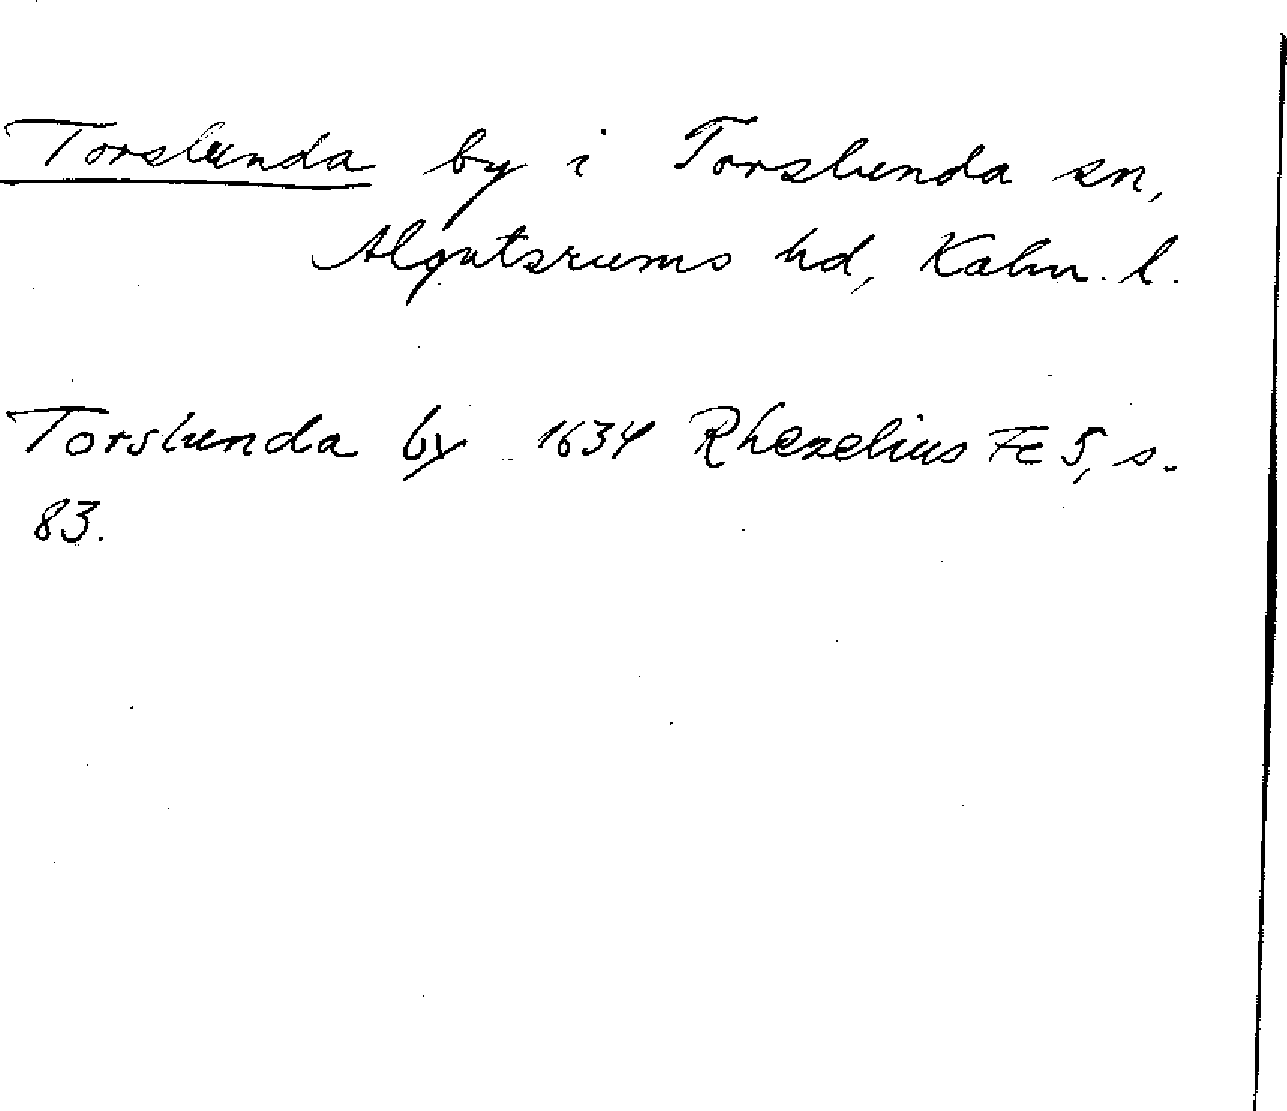 Torslunda by i Torslunda sn,
Algutsrums hd, Kalm. l.
Torslunda by 1634 Rhezelius Fc 5, s.
83.